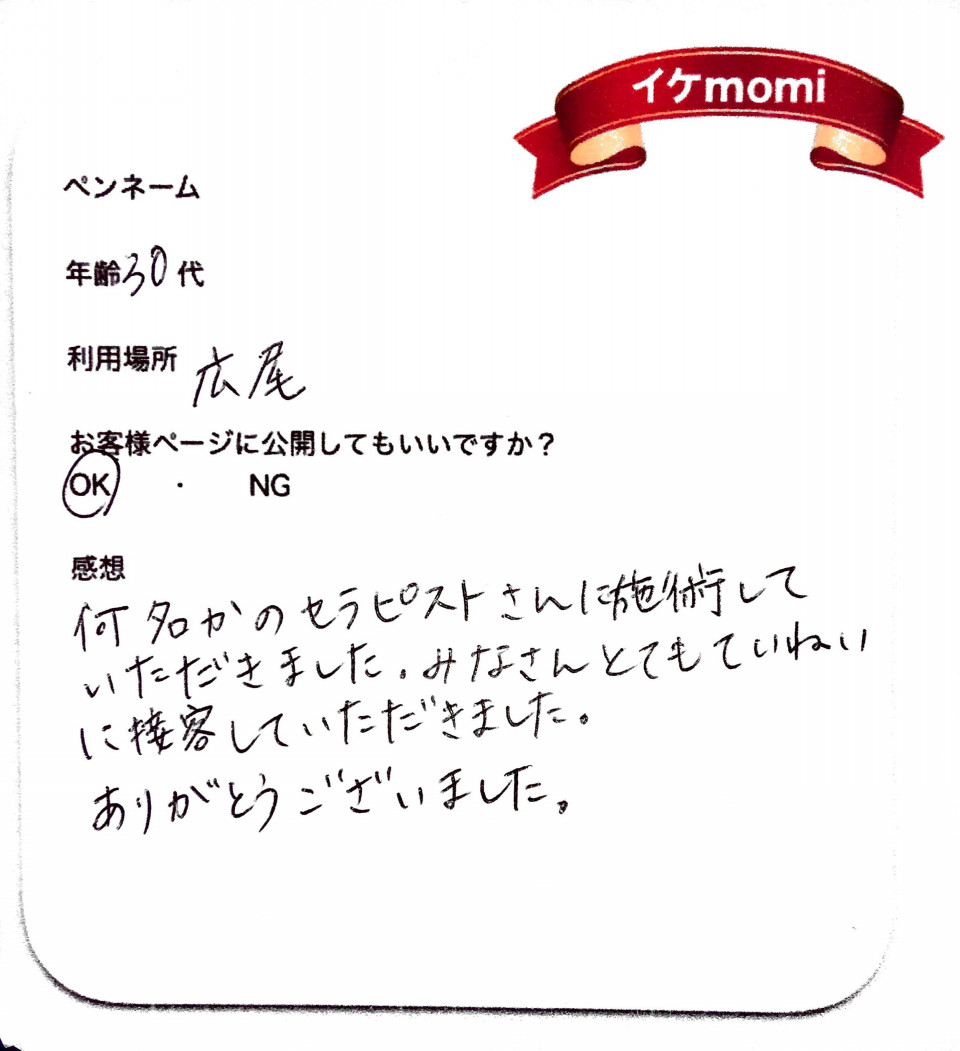 イケmomi
ペンネーム
年齢30代
利用場所 広尾
お客様ページに公開してもいいですか？
OK ・ NG
感想
何名かのセラピストさんに施術して
いただきました。みなさんとてもていねい
に接客していただきました。
ありがとうございました。